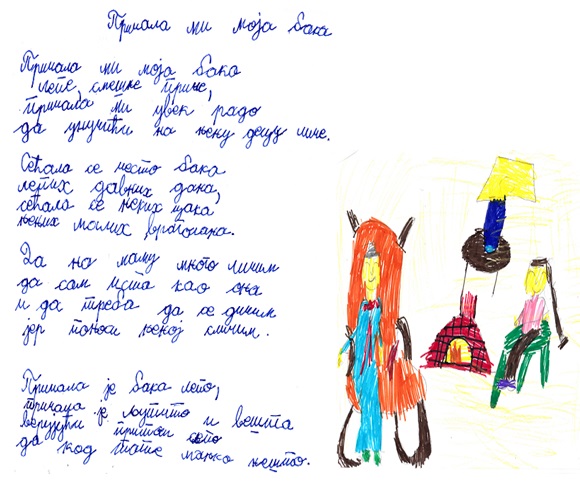 Причала ми моја бака
Причала ми моја бака
лепе, смешне приче,
причала ми увек радо
да унучићи на њену децу личе.
Сећала се често бака
лепих давних дана,
сећала се неких ђака
њених малих врагопана.
Да на маму много личим
да сам иста као она
и да треба да се дичим
јер поноси њеној сличим.
Причала је бака лепо,
причала је и вешта
верујући притом
да код тате мањка нешто.